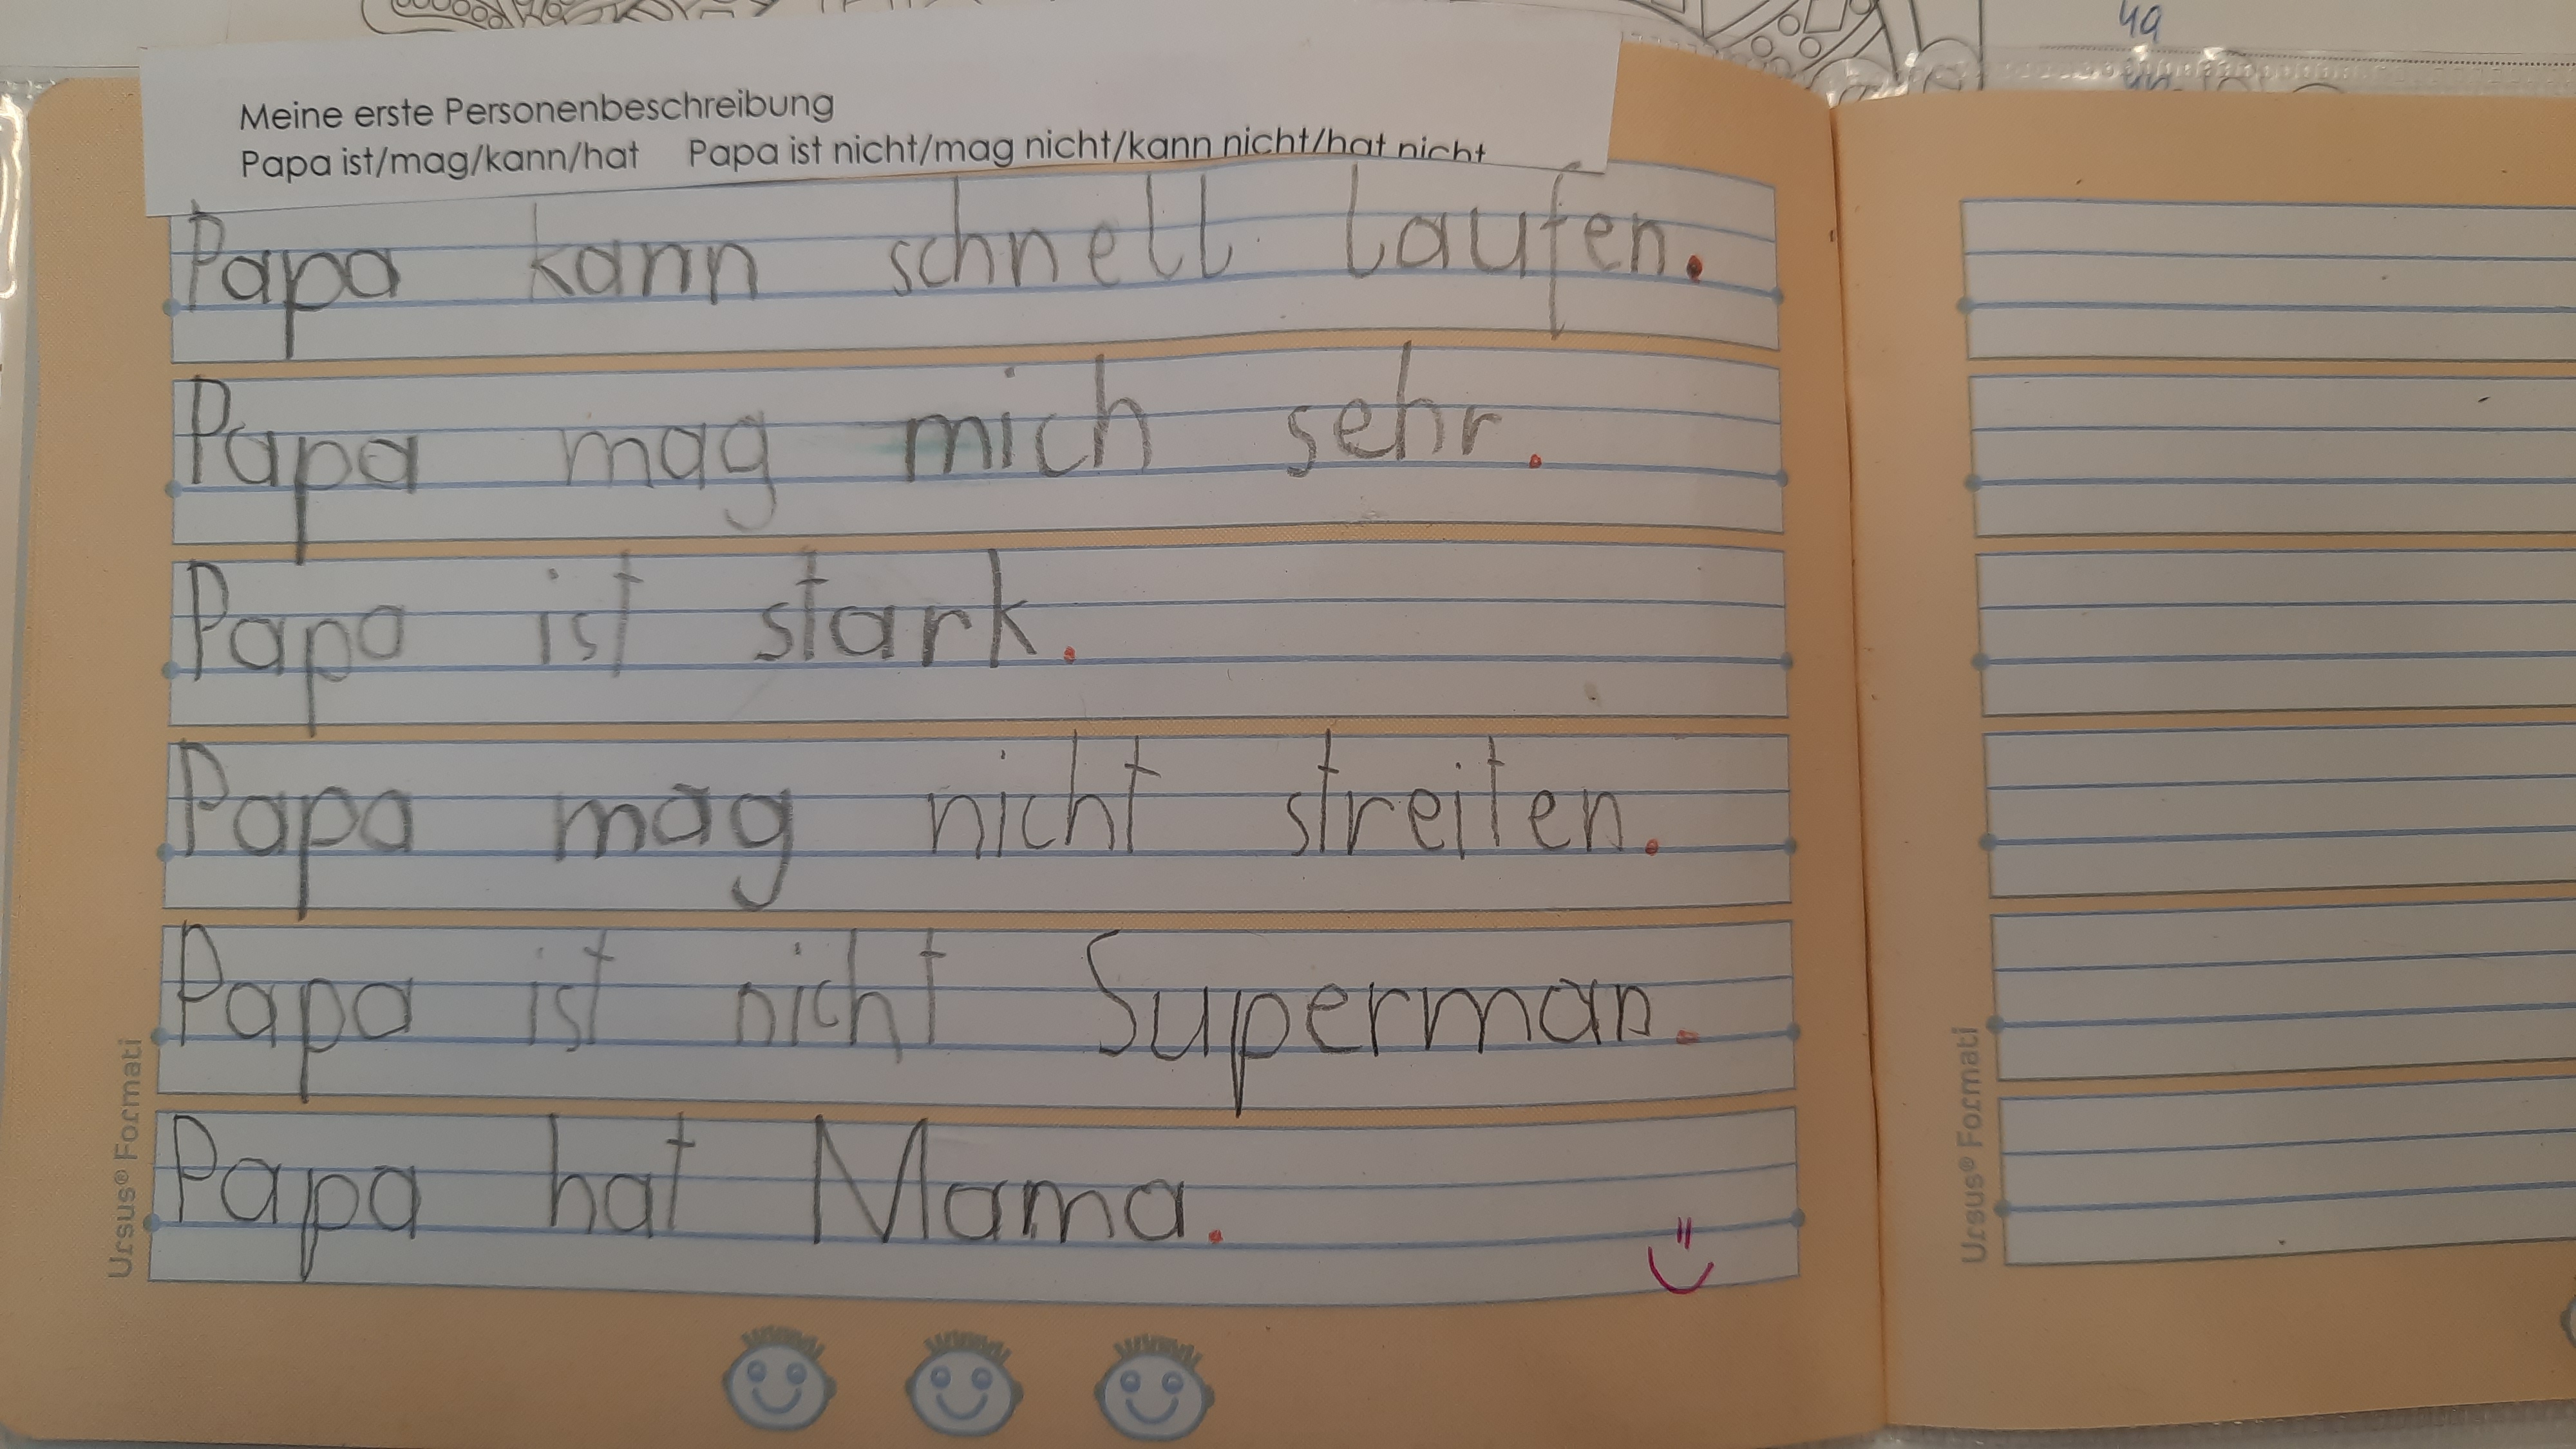 Meine erste Personenbeschreibung
Papa ist/mag/kann/hat Papa ist nicht/mag nicht/kann nicht/hat nicht
Papa kann schnell laufen.
Papa mag mich sehr.
Papa ist stark.
Papa mag nicht streiten.
Papa ist nicht Superman.
Papa hat Mama.
Ursus® Formati
Ursus® Formati